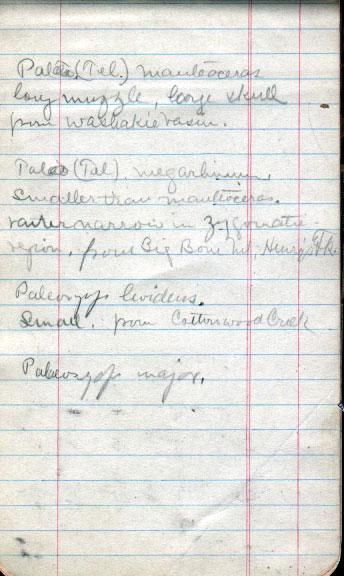 Palaeo (Tel.) manteoceras
long muzzle, large skull
from washakie basin.
Palaeo (Tel) megarhinum,
Smaller than manteoceras.
rather narrow in zygomatic
region, from Big Bone, Henry's Fk.
Paleosyops levidens.
Small. from Cottonwood Creek
Paleosyops major.